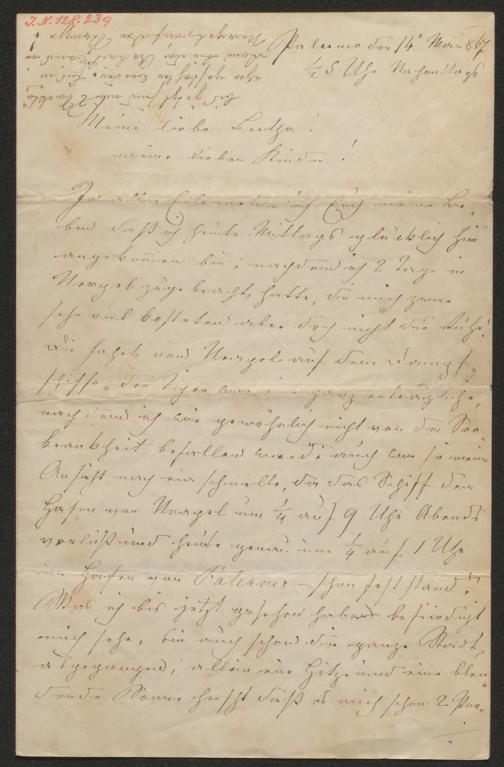 I.N. 128.239
Palermo den 14t Mai 867
½ 5 Uhr Nachmittags
Meine liebe Bertha!
meine lieben Kinder!
In aller Eile melde ich Euch meine Lie-
ben daß ich heute Mittags glücklich hier
angekommen bin; nachdem ich 2 Tage in
Neapel zugebracht hatte, die mich zwar
sehr viel kosteten aber doch nicht die Mühe.
Die Fahrt von Neapel auf dem Dampf-
schiffe war eine ganz erträgliche,
nachdem ich wie gewöhnlich nicht von der See
krankheit befallen wurde auch war sie meiner
Ansicht nach eine schnelle, da das Schiff den
Hafen von Neapel um ¼ auf 9 Uhr Abends
verließ und heute genau um ¼ auf 1 Uhr
im Hafen von Palermo schon fest stand!
Was ich bis jetzt gesehen habe befriedigt
mich sehr, bin auch schon die ganze Stadt
abgegangen; allein eine Hitze und eine blen
dende Sonne herrscht daß es mich schon 2 Paar